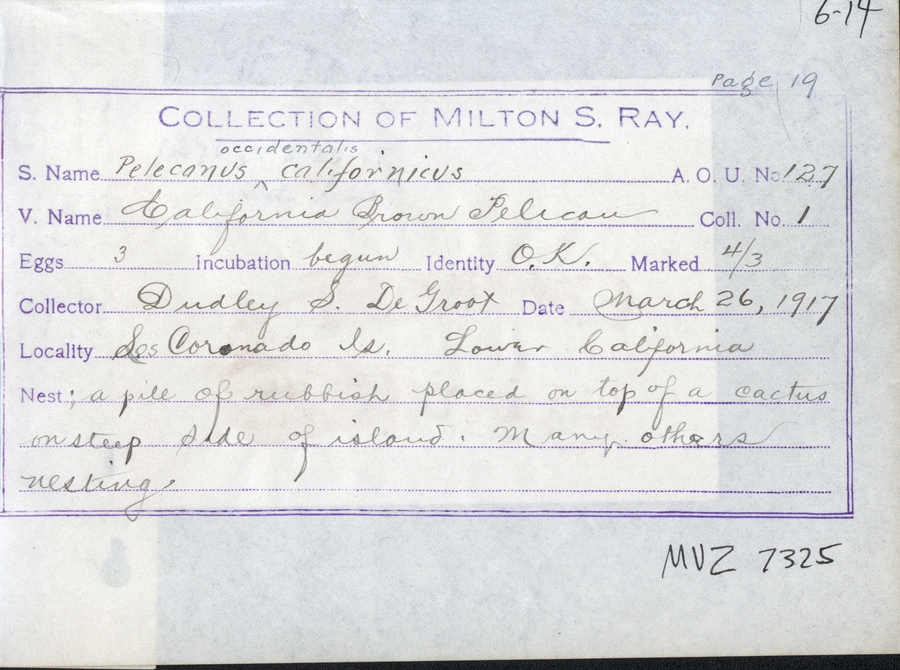 6-14
Page 19
COLLECTION OF MILTON S. RAY.
occidentalis
S. Name Pelecanus ^ californicus A. O. U. No. 127
V. Name California Brown Pelican Coll. No. 1
Eggs 3 Incubation begun Identity O.K. Marked 4/3
Collector Dudley S. DeGroot Date March 26, 1917
Locality Los Coronado Is. Lower California
Nest; a pile of rubbish placed on top of a cactus
on steep side of island. Many others
nesting.
MVZ 7325